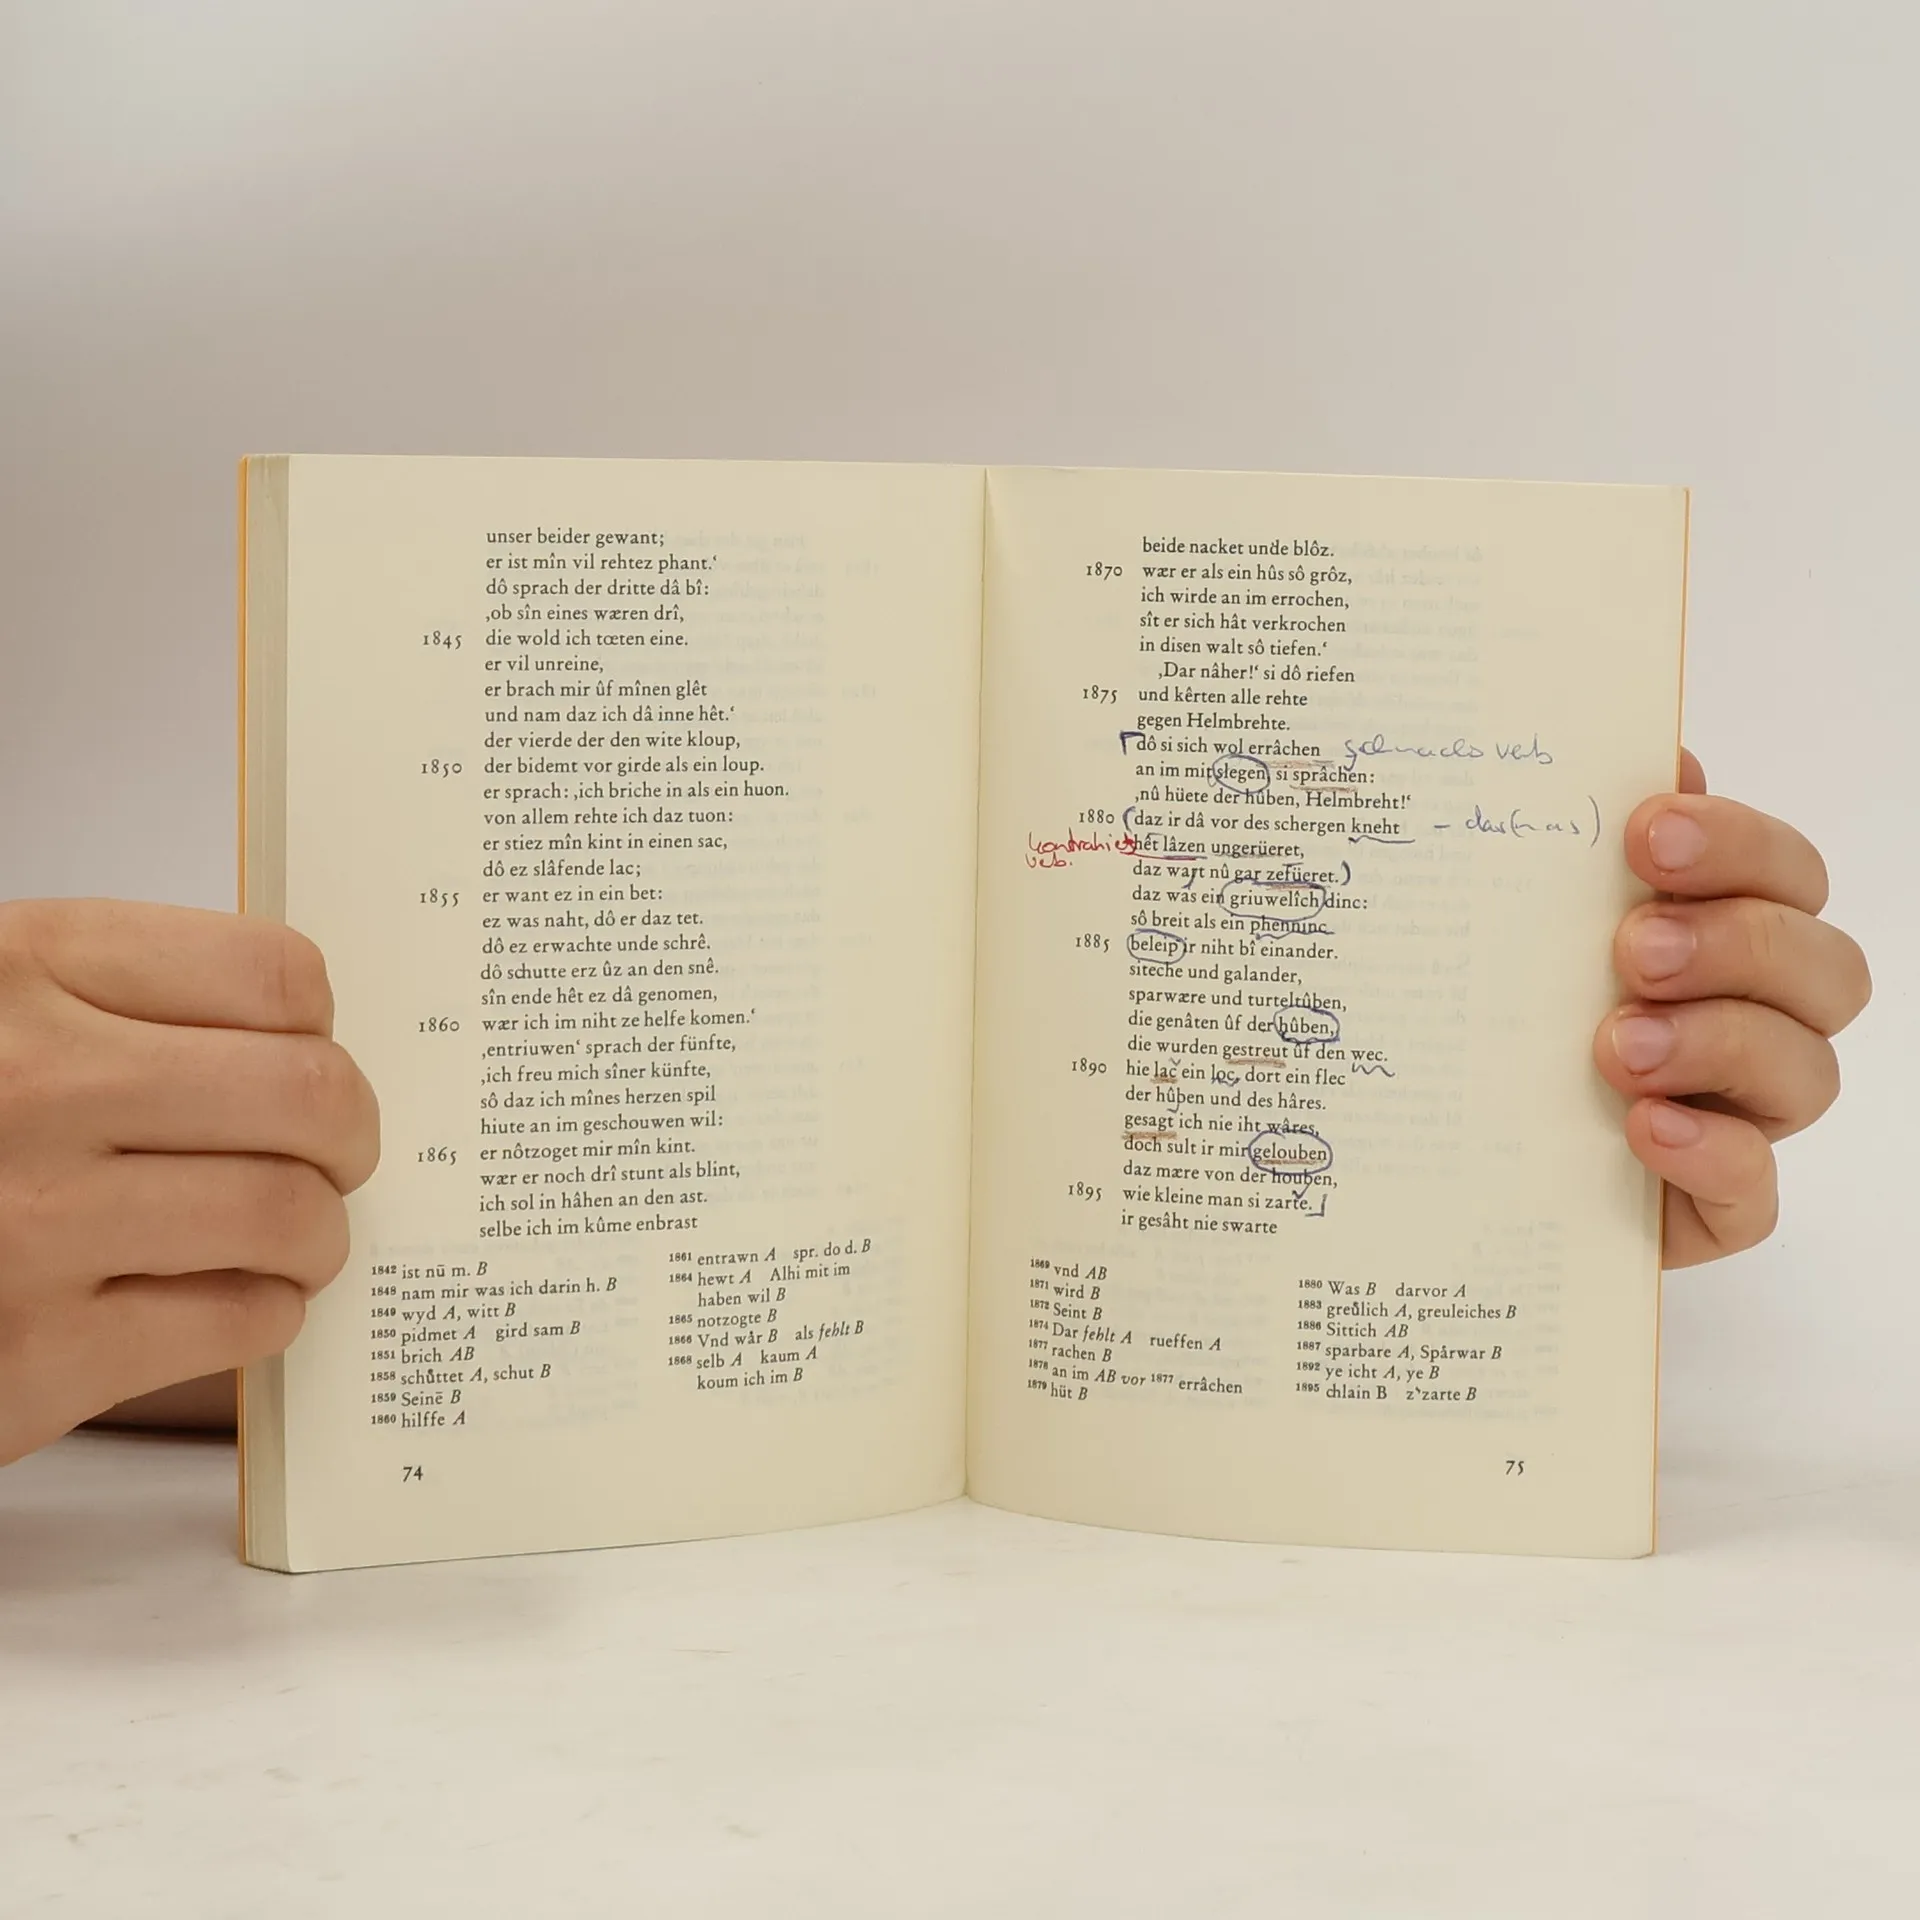 unser beider gewant;
er ist mîn vil rehtez phant.‘
dô sprach der dritte dâ bî:
‚ob sîn eines wæren drî,
1845 die wold ich tœten eine.
er vil unreine,
er brach mir ûf mînen glêt
und nam daz ich dâ inne hêt.‘
der vierde der den wite kloup,
1850 der bidemt vor girde als ein loup.
er sprach: ‚ich briche in als ein huon.
von allem rehte ich daz tuon:
er stiez mîn kint in einen sac,
dô ez slâfende lac;
1855 er want ez in ein bet:
ez was naht, dô er daz tet.
dô ez erwachte unde schrê.
dô schutte erz ûz an den snê.
sîn ende hêt ez dâ genomen,
1860 wær ich im niht ze helfe komen.‘
‚entriuwen‘ sprach der fünfte,
‚ich freu mich sîner künfte,
sô daz ich mînes herzen spil
hiute an im geschouwen wil:
1865 er nôtzoget mir mîn kint.
wær er noch drî stunt als blint,
ich sol in hâhen an den ast.
selbe ich im kûme enbrast
1842 ist nū m. B
1848 nam mir was ich darin h. B
1849 wyd A, witt B
1850 pidmet A gird sam B
1851 brich AB
1858 schůttet A, schut B
1859 Seinē B
1860 hilffe A
1861 entrawn A spr. do d. B
1864 hewt A Alhi mit im
haben wil B
1865 notzogte B
1866 Vnd wår B als fehlt B
1868 selb A kaum A
koum ich im B
74
beide nacket unde blôz.
1870 wær er als ein hûs sô grôz,
ich wirde an im errochen,
sît er sich hât verkrochen
in disen walt sô tiefen.‘
‚Dar nâher!‘ si dô riefen
1875 und kêrten alle rehte
gegen Helmbrehte.
dô si sich wol errâchen verb
an im mit slegen, si sprâchen:
‚nû hüete der hûben, Helmbreht!‘
1880 (daz ir dâ vor des schergen kneht
kontrahiert hêt lâzen ungerüeret,
verb.
daz wart nû gar zefüeret.)
daz was ein griuwelîch dinc:
sô breit als ein phenninc
1885 beleip ir niht bî einander.
siteche und galander,
sparwære und turteltûben,
die genâten ûf der hûben,
die wurden gestreut ûf den wec.
1890 hie lac ein loc, dort ein flec
der hûben und des hâres.
gesagt ich nie iht wâres,
doch sult ir mir gelouben
daz mære von der houben,
1895 wie kleine man si zarte.
ir gesâht nie swarte
1869 vnd AB
1871 wird B
1872 Seint B
1874 Dar fehlt A rueffen A
1877 rachen B
1878 an im AB vor 1877 errâchen
1879 hüt B
1880 Was B darvor A
1883 greůlich A, greuleiches B
1886 Sittich AB
1887 sparbare A, Spårwar B
1892 ye icht A, ye B
1895 chlain B z'zarte B
75